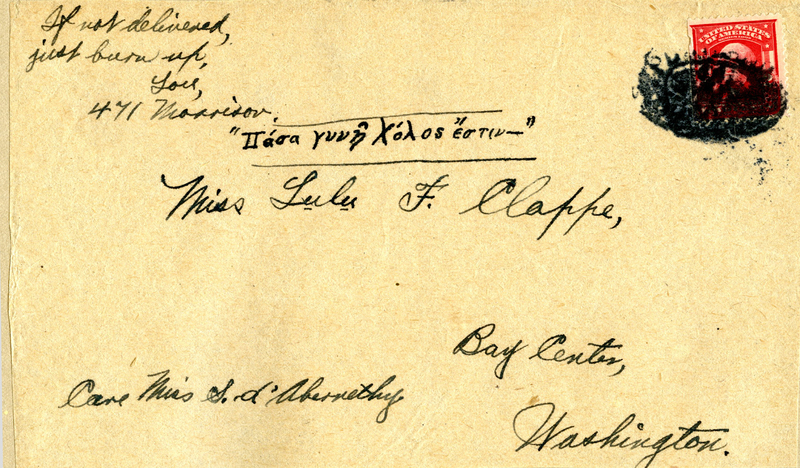 If not delivered,
just burn up,
Lou,
471 Morrison.
UNITED STATES
OF AMERICA
"Πάσα γυνὴ χόλος ἔστιν—"
Miss Lulu F. Clappe,
Bay Center,
Care Miss S. d'Abernethy.
Washington.